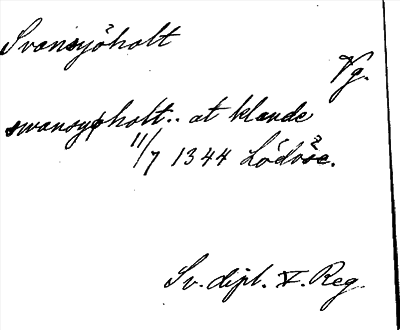 Svansjöholt
Vg.
swansyøholt.. at klande
11/7 1344 Lödöse.
Sv. dipl. V. Reg.